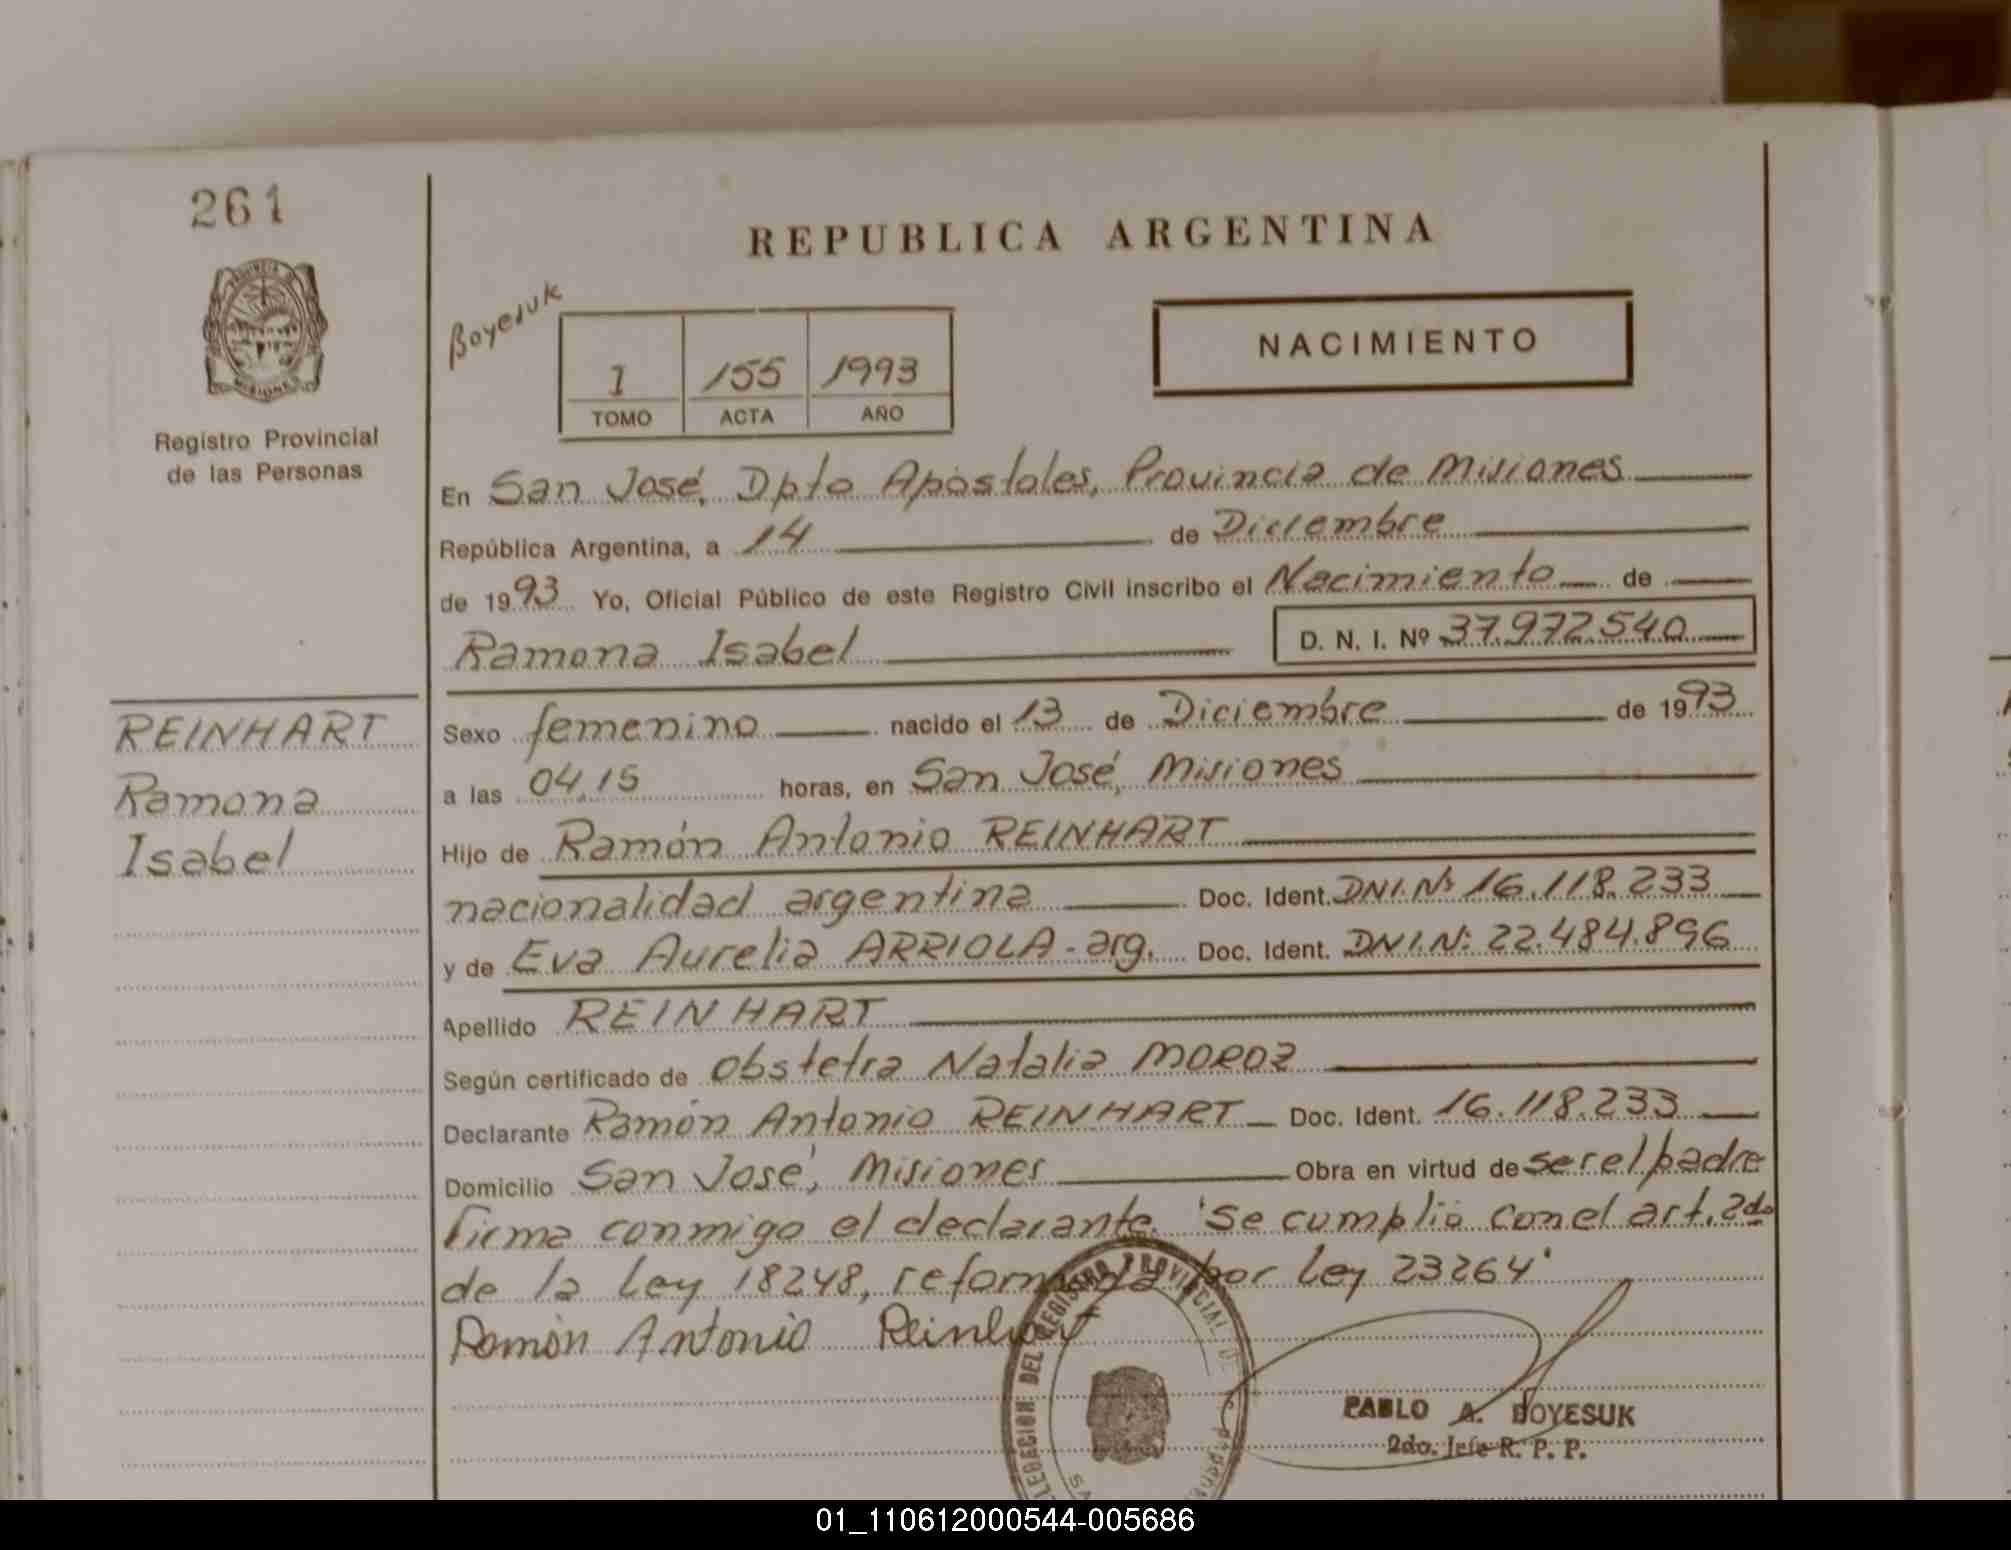 261
REPUBLICA ARGENTINA
Boyesuk
1 155 1993
TOMO ACTA AÑO
NACIMIENTO
PROVINCIA DE
MISIONES
Registro Provincial
de las Personas
En San José, Dpto Apóstoles, Provincia de Misiones
República Argentina, a 14 de Diciembre
de 1993 Yo, Oficial Público de este Registro Civil inscribo el Nacimiento de
Ramona Isabel D. N. I. Nº 37.972.540
REINHART
Ramona
Isabel
Sexo femenino nacido el 13 de Diciembre de 1993
a las 04,15 horas, en San José, Misiones
Hijo de Ramón Antonio REINHART
nacionalidad argentina Doc. Ident. DNI.Nº 16.118.233
y de Eva Aurelia ARRIOLA-arg. Doc. Ident. DNI.N: 22.484.896
Apellido REINHART
Según certificado de obstetra Natalia MOROZ
Declarante Ramón Antonio REINHART Doc. Ident. 16.118.233
Domicilio San José, Misiones Obra en virtud de ser el padre
Firma conmigo el declarante. 'Se cumplió con el art. 2do
de la Ley 18248, reformada por Ley 23264'
Ramón Antonio Reinhart
DELEGACION DEL REGISTRO PROVINCIAL DE
PABLO A. BOYESUK
2do. Jefe R. P. P.
01_110612000544-005686